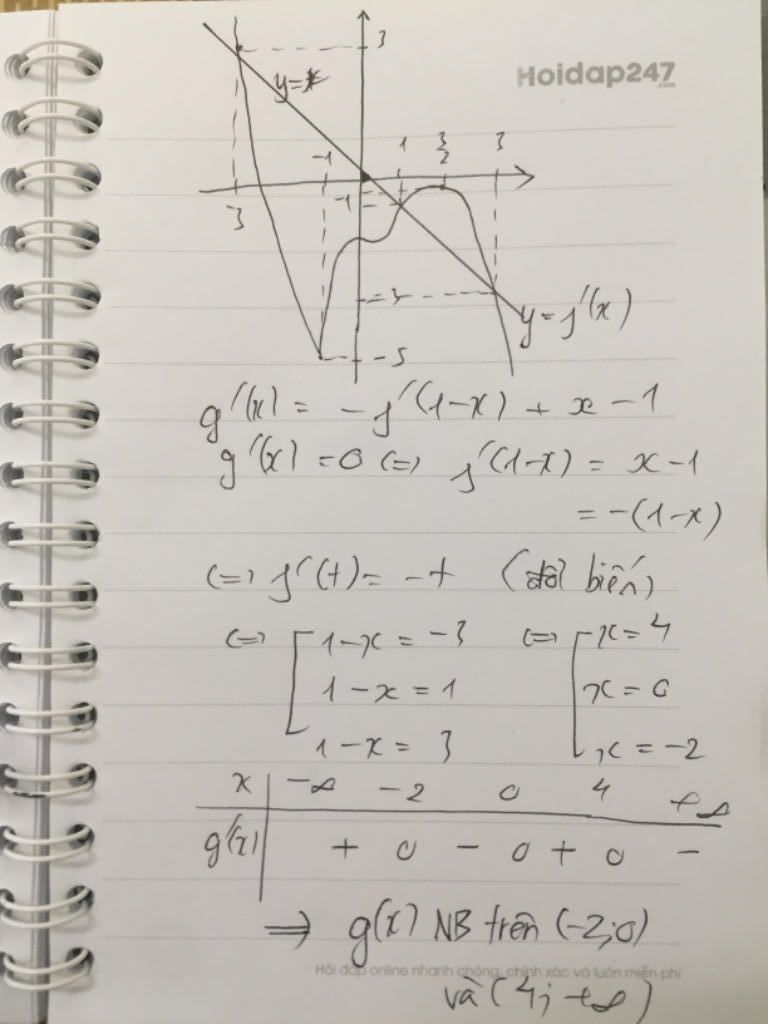 3
Hoidap247
.com
y=x
-1
1
3/2
3
-3
-1
-3
y=f'(x)
-5
g'(x) = -f'(1-x) + x - 1
g'(x) = 0 (=) f'(1-x) = x-1
= -(1-x)
(=) f'(t) = -t (đổi biến)
(=) [ 1-x = -3 (=) [ x = 4
1-x = 1 x = 0
1-x = 3 x = -2
x | -∞ -2 0 4 +∞
g'(x) | + 0 - 0 + 0 -
=> g(x) NB trên (-2;0)
Hỏi đáp online nhanh chóng, chính xác và luôn miễn phí
và (4; +∞)